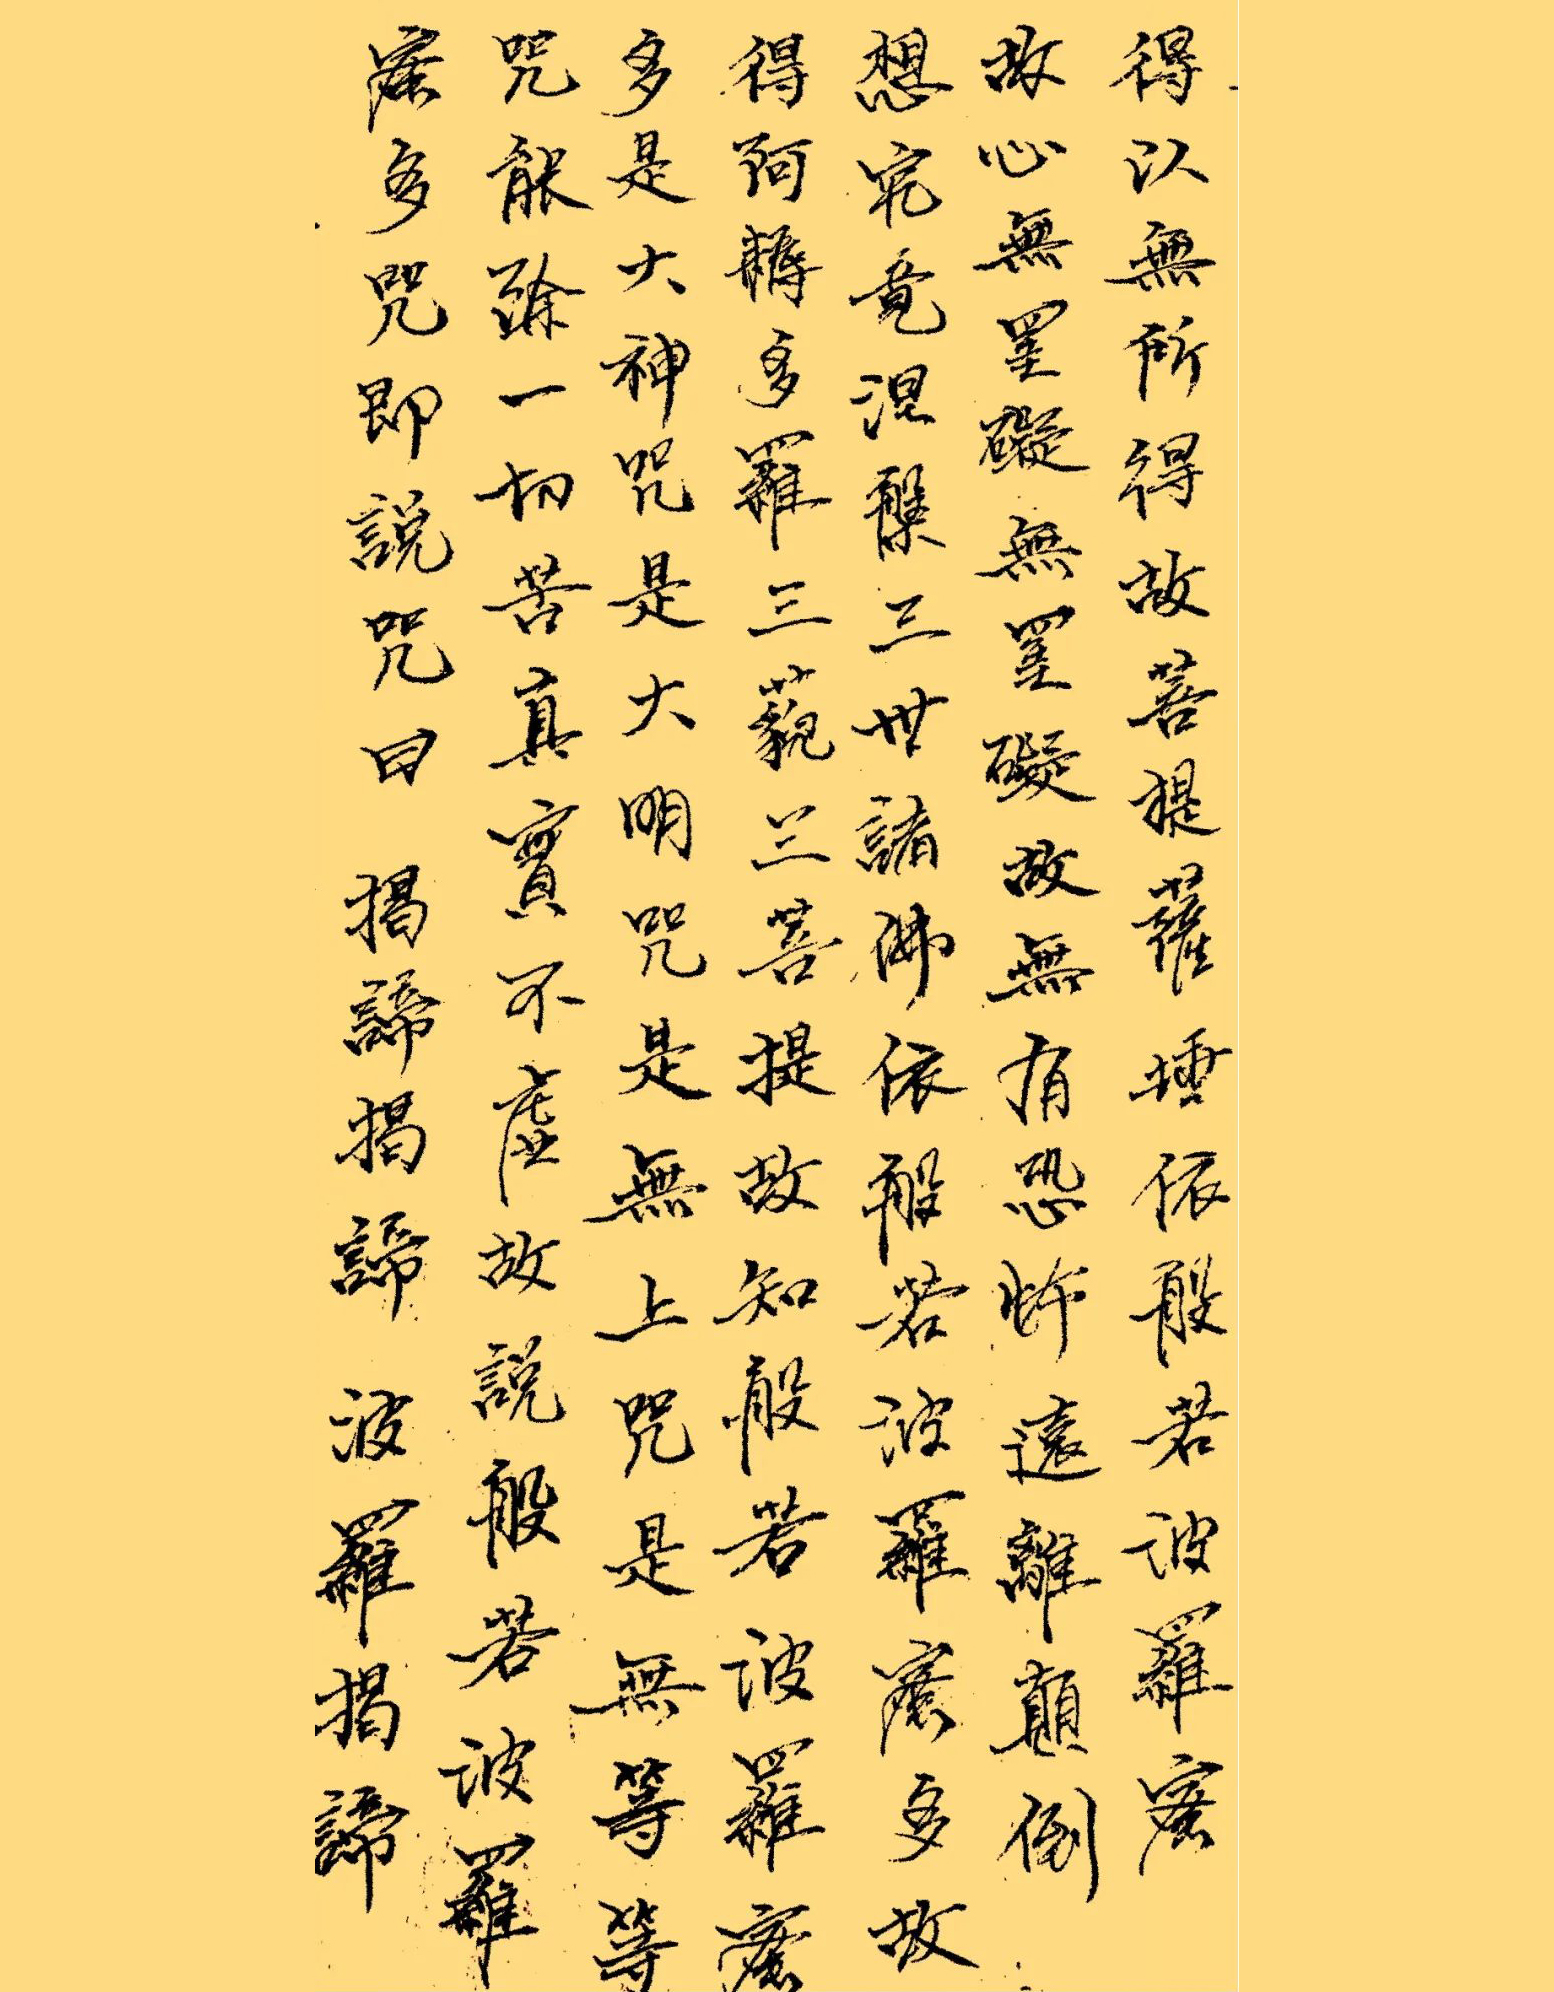 得以無所得故菩提薩埵依般若波羅蜜
故心無罣礙無罣礙故無有恐怖遠離顛倒
想究竟涅槃三世諸佛依般若波羅蜜多故
得阿耨多羅三藐三菩提故知般若波羅蜜
多是大神咒是大明咒是無上咒是無等等
咒能除一切苦真實不虛故說般若波羅
蜜多咒即說咒曰 揭諦揭諦 波羅揭諦